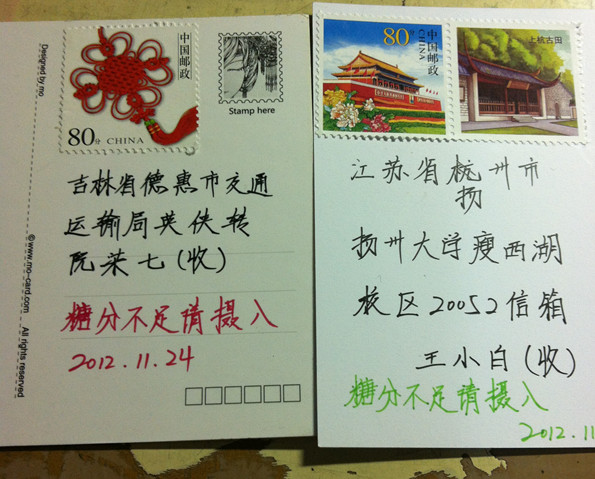 Designed by mo.
中国邮政
80分 CHINA
Stamp here
吉林省德惠市交通
运输局英侠转
阮柒七(收)
糖分不足请摄入
2012.11.24
©www.mo-card.com All rights reserved
80分
中国邮政
CHINA
上杭古田
江苏省杭州市
扬
扬州大学瘦西湖
校区20052信箱
王小白(收)
糖分不足请摄入
2012.11